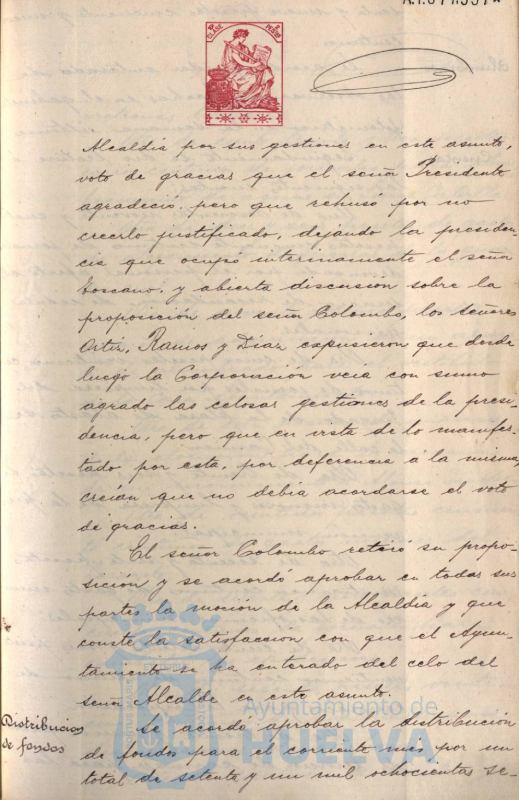 Alcaldía por sus gestiones en este asunto,
voto de gracias que el señor Presidente
agradeció, pero que rehusó por no
creerlo justificado, dejando la presiden-
cia que ocupó interinamente el señor
Toscano, y abierta discusión sobre la
proposición del señor Colombo, los señores
Ortiz, Ramos y Díaz expusieron que desde
luego la Corporación veía con sumo
agrado las celosas gestiones de la presi-
dencia, pero que en vista de lo manifes-
tado por esta, por deferencia á la misma,
creían que no debía acordarse el voto
de gracias.
El señor Colombo retiró su propo-
sición y se acordó aprobar en todas sus
partes la moción de la Alcaldía y que
conste la satisfaccion con que el Ayun-
tamiento se ha enterado del celo del
señor Alcalde en este asunto.
Distribucion
de fondos
Se acordó aprobar la distribución
de fondos para el corriente mes por un
total de setenta y un mil ochocientas se-
Ayuntamiento de
HUELVA